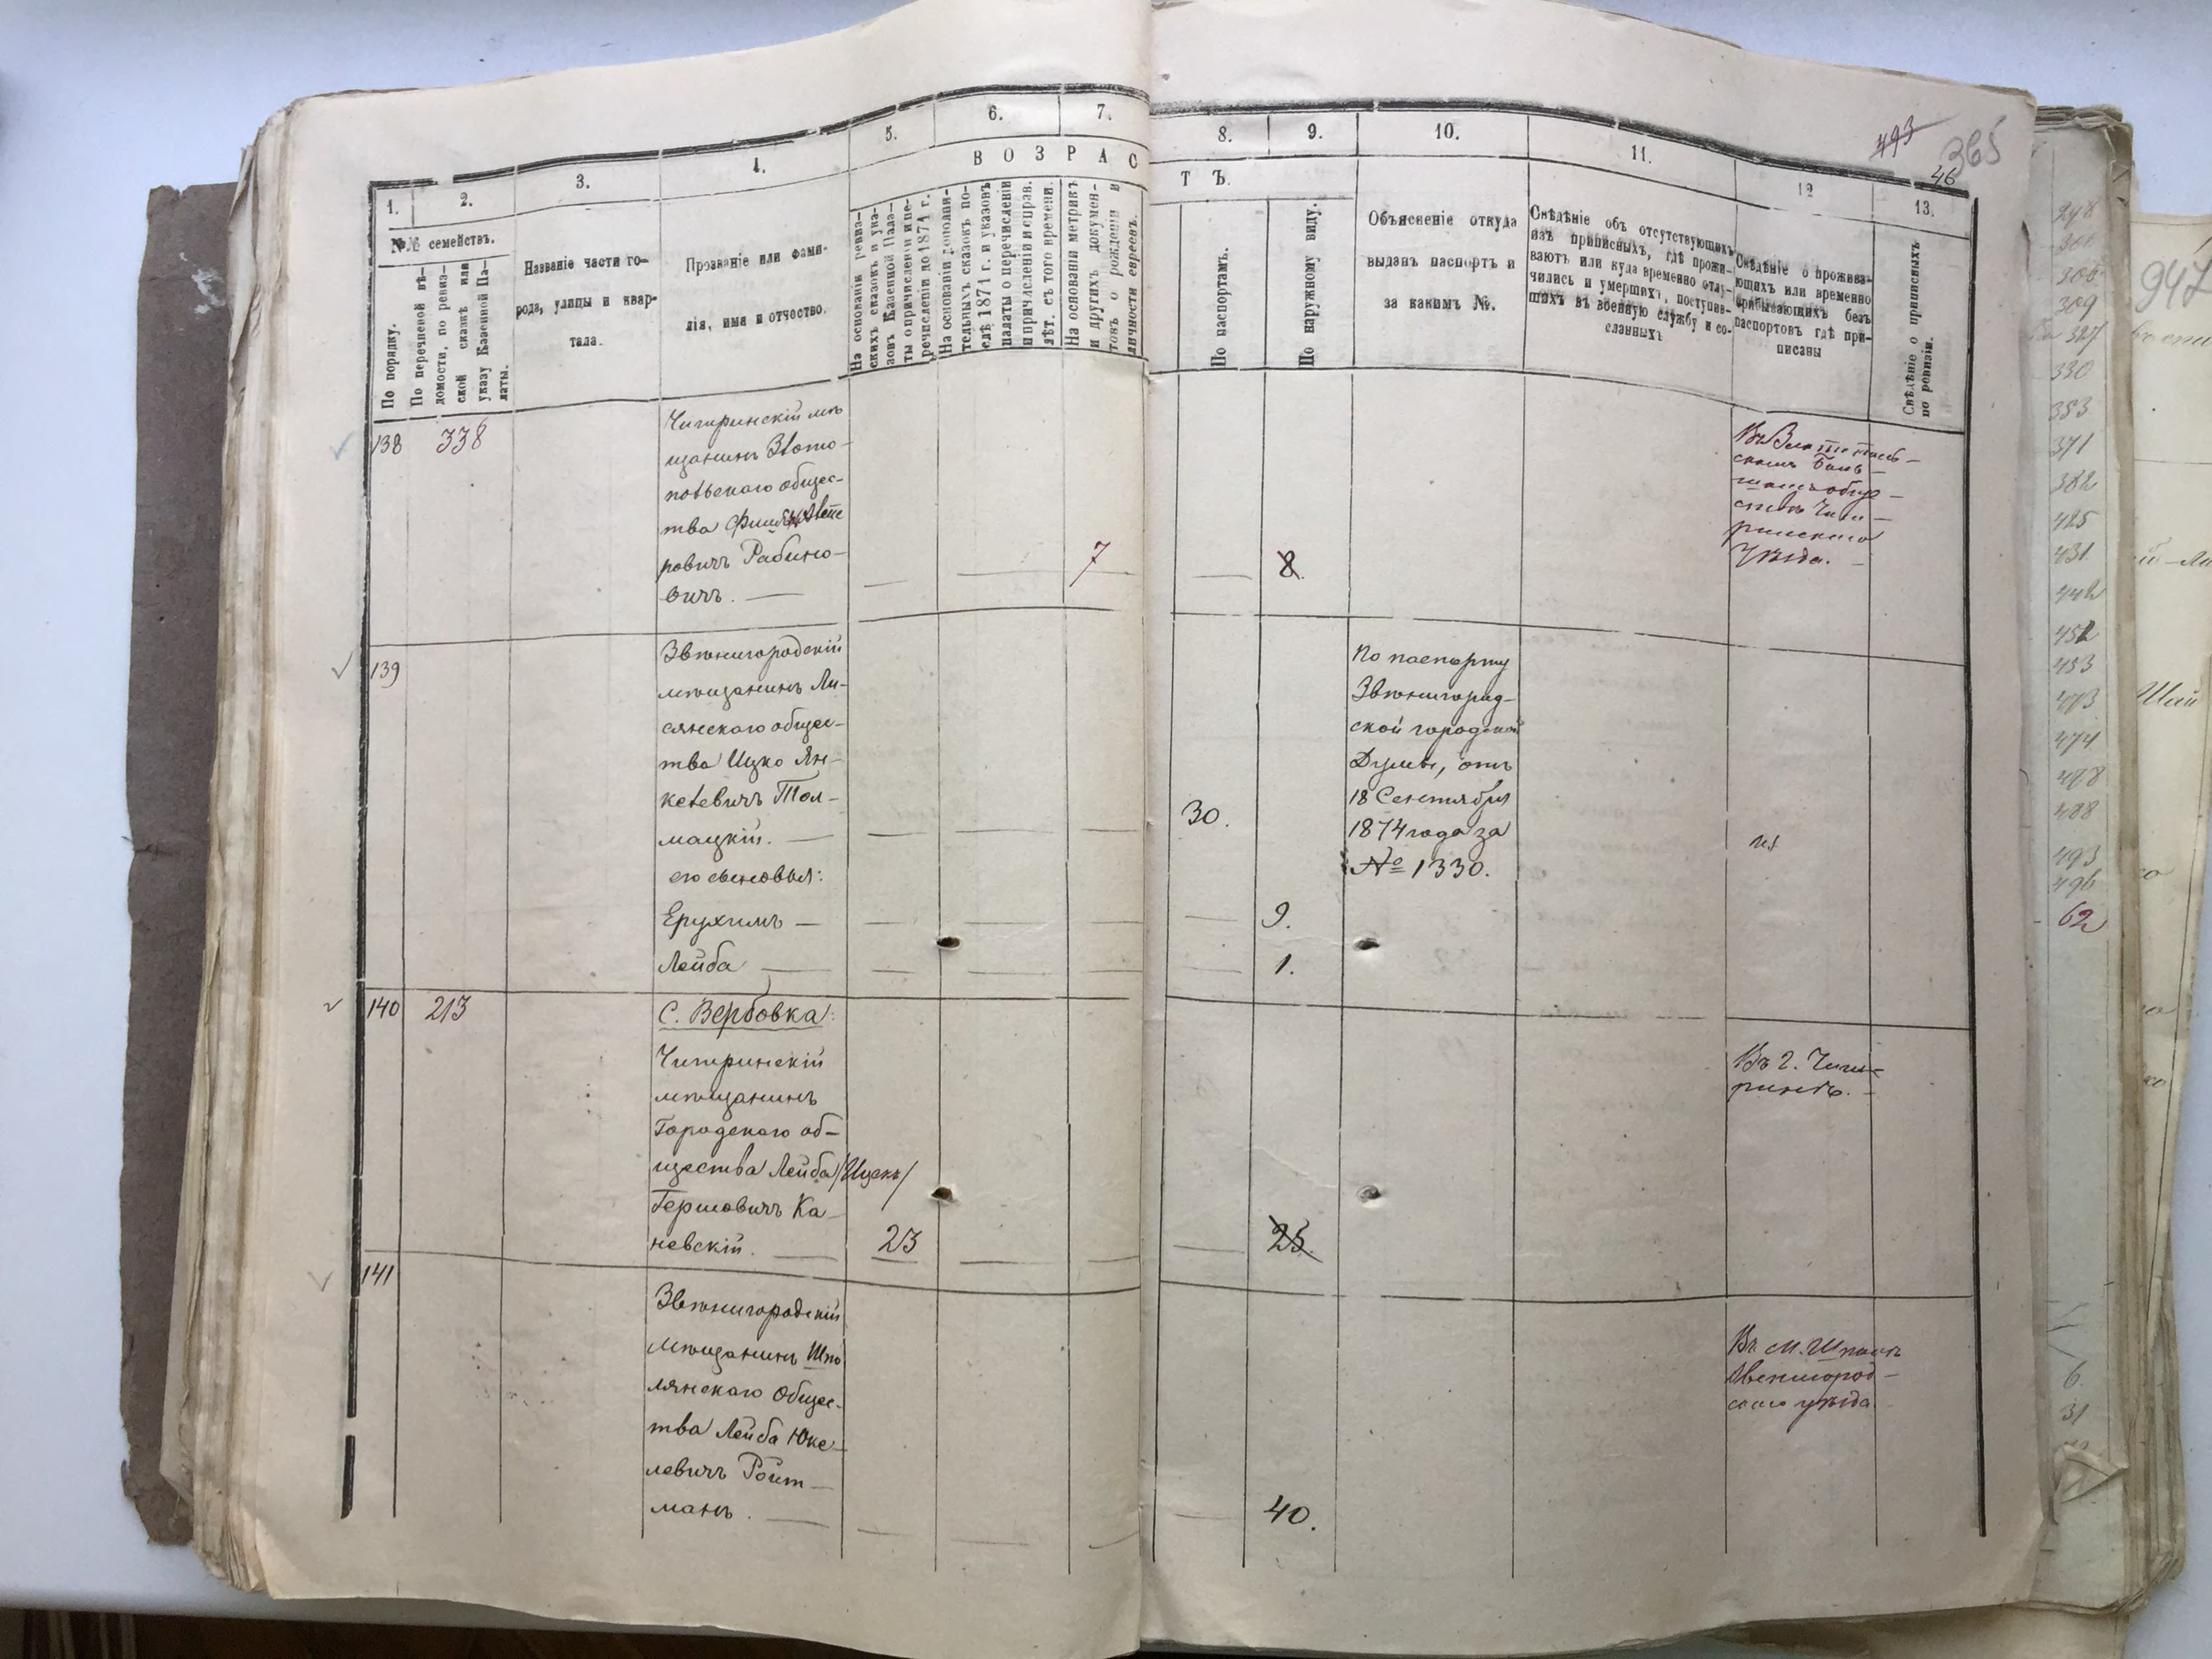 1.
2.
3.
4.
5.
6.
7.
8.
9.
10.
11.
12
13.
493
365
46
ВОЗРАС
ТЪ.
№№ семействъ.
По порядку.
По перечневой вѣ-
домости, по ревиз-
ской сказкѣ или
указу Казенной Па-
латы.
Названіе части го-
рода, улицы и квар-
тала.
Прозваніе или фами-
лія, имя и отчество.
На основаніи ревиз-
скихъ сказокъ и ука-
зовъ Казенной Пала-
ты о причисленіи и пе-
речисленіи до 1871 г.
На основаніи дополни-
тельныхъ сказокъ по-
слѣ 1871 г. и указовъ
палаты о перечисленіи
и причисленіи и справ.
лѣт. съ того времени.
На основаніи метрикъ
и другихъ докумен-
товъ о рожденіи и
личности евреевъ.
По паспортамъ.
По наружному виду.
Объясненіе откуда
выданъ паспортъ и
за какимъ №.
Свѣдѣніе объ отсутствующихъ
изъ приписныхъ, гдѣ прожи-
ваютъ или куда временно отлу-
чились и умершихъ, поступив-
шихъ въ военную службу и со-
сланныхъ
Свѣдѣніе о прожива-
ющихъ или временно
прибывающихъ безъ
паспортовъ гдѣ при-
писаны
Свѣдѣніе о приписныхъ
по ревизіи.
138
338
Чигиринскій мѣ
щанинъ Злото-
польскаго общес-
тва
ровичъ Рабино-
вичъ.
7
8.
Чиги-
ринскаго
Уѣзда.
139
Звѣнигородскій
мѣщанинъ Ли-
сянскаго общес-
тва Ицко Ян-
келевичъ Тол-
мацкій.
его сыновья:
Ерухимъ
Лейба
30.
9.
1.
По паспорту
Звѣнигород-
ской городской
Думы, отъ
18 Сентября
1874 года за
№ 1330.
140
213
С. Вербовка:
Чигиринскій
мѣщанинъ
Городскаго об-
щества Лейба /Ицекъ/
Гершовичъ Ка-
невскій.
23
25.
Въ г. Чиги-
ринѣ.
141
Звѣнигородскій
мѣщанинъ Шпо
лянскаго Общес-
тва Лейба Юке-
левичъ Ройт-
манъ.
40.
Въ м. Шполѣ
Звенигород-
скаго уѣзда
298
309
330
353
371
382
425
431
442
452
453
473
474
478
488
493
496
62
6
31
947
Шай